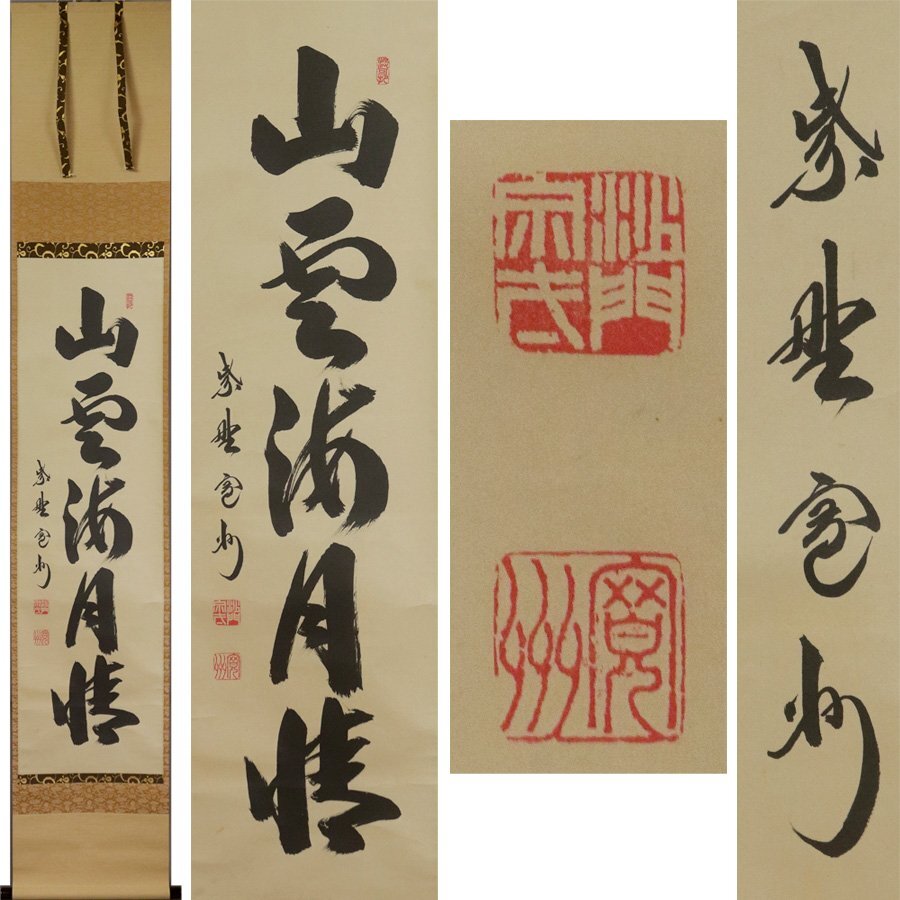 山雲海月情
紫野寛州
山雲海月情
紫野寛州
沙門
寛州
紫野寛州